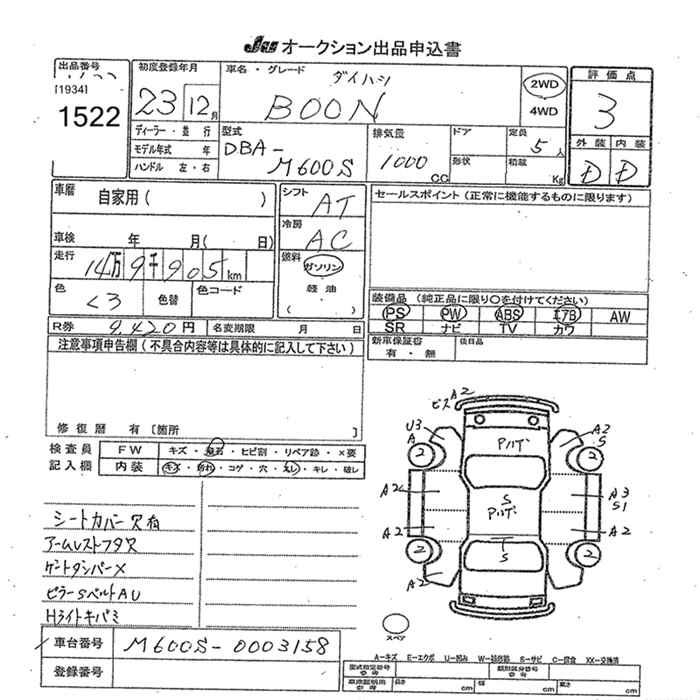 JU オークション出品申込書
出品番号 [1934] 1522
初度登録年月 23 12月
車名・グレード ダイハツ BOON
2WD 4WD
評価点 3
外装 内装 D D
ディーラー・並行
モデル年式 年
ハンドル 左・右
型式 DBA-M600S
排気量 1000 CC
ドア
形状
定員 5人
積載 Kg
車歴 自家用( )
車検 年 月( 日)
走行 14万9千905km
色 クロ 色替 色コード
シフト AT
冷房 AC
燃料 ガソリン
軽油
( )
セールスポイント(正常に機能するものに限ります)
装備品(純正品に限り○を付けてください)
PS PW ABS エアB AW
SR ナビ TV カワ
新車保証書 有・無 後日品
R券 9,420円 名変期限 月 日
注意事項申告欄(不具合内容等は具体的に記入して下さい)
修復歴 有[箇所 ]
検査員記入欄
FW キズ・飛石・ヒビ割・リペア跡・×要
内装 キズ・汚れ・コゲ・穴・スレ・キレ・破レ
シートカバー欠有
アームレストフタ欠
ゲートダンパー×
ピラーSベルトAU
Hライトキバミ
ビス A2
U3
A
A2
S
A2
A2
A2
A3
S1
A2
2
2
2
2
Pハゲ
S
Pハゲ
S
スペア
A-キズ E-エクボ U-凹み W-補修跡 S-サビ C-腐食 XX-交換済
車台番号 M600S-0003158
登録番号
型式指定番号 参考
類別区分番号 参考
車庫証明用 参考
長さ cm 幅 cm 高さ cm